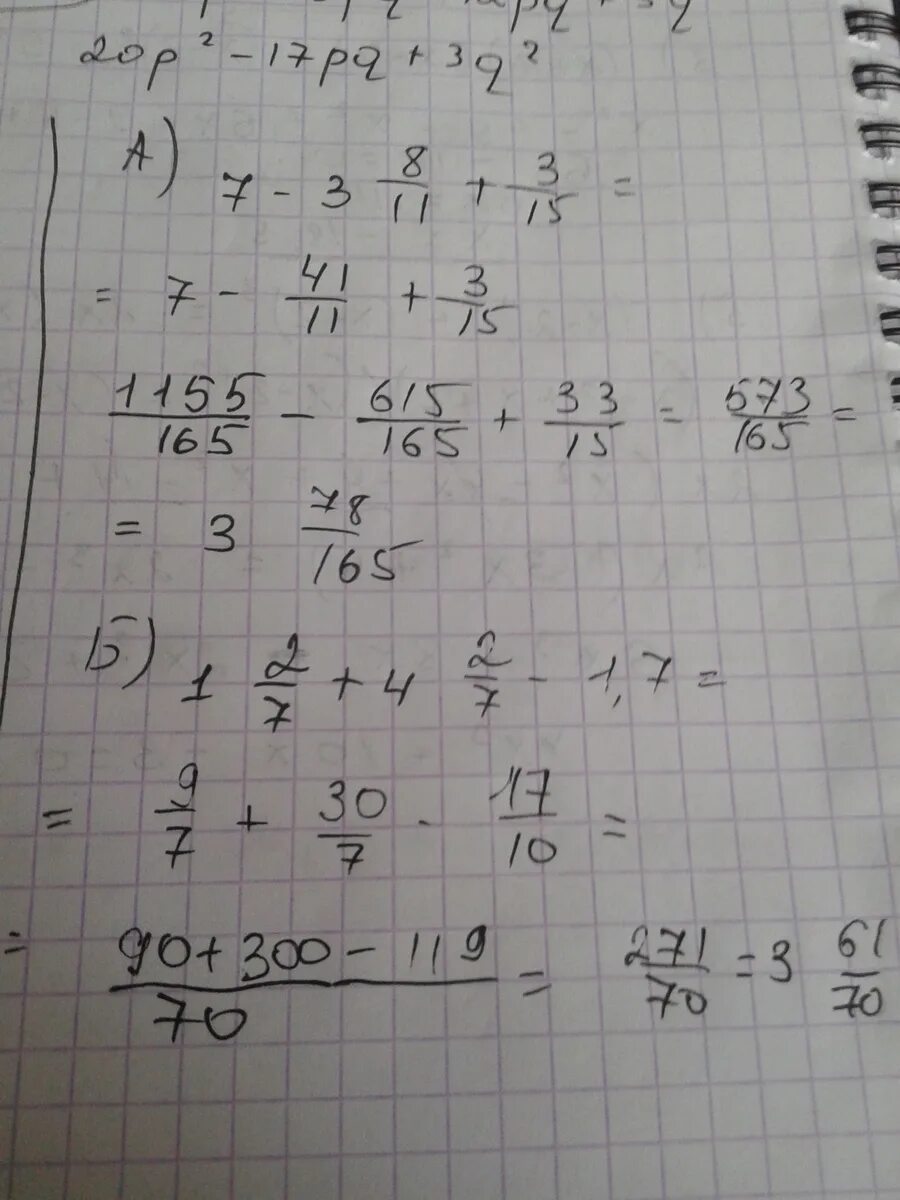 20p² - 17pq + 3q²
А) 7 - 3 8/11 + 3/15 =
= 7 - 41/11 + 3/15
1155/165 - 615/165 + 33/15 = 573/165 =
= 3 78/165
Б) 1 2/7 + 4 2/7 - 1,7 =
= 9/7 + 30/7 - 17/10 =
= (90 + 300 - 119)/70 = 271/70 = 3 61/70